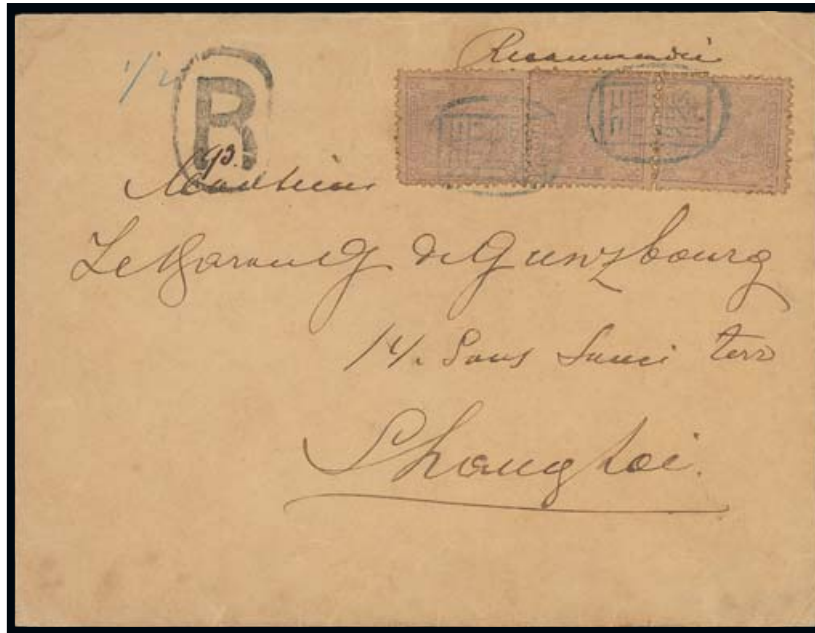 Recommandée
1/2
R
93.
Monsieur
Le Baron G de Gunzbourg
14. Sans Souci terr
Shanghai.